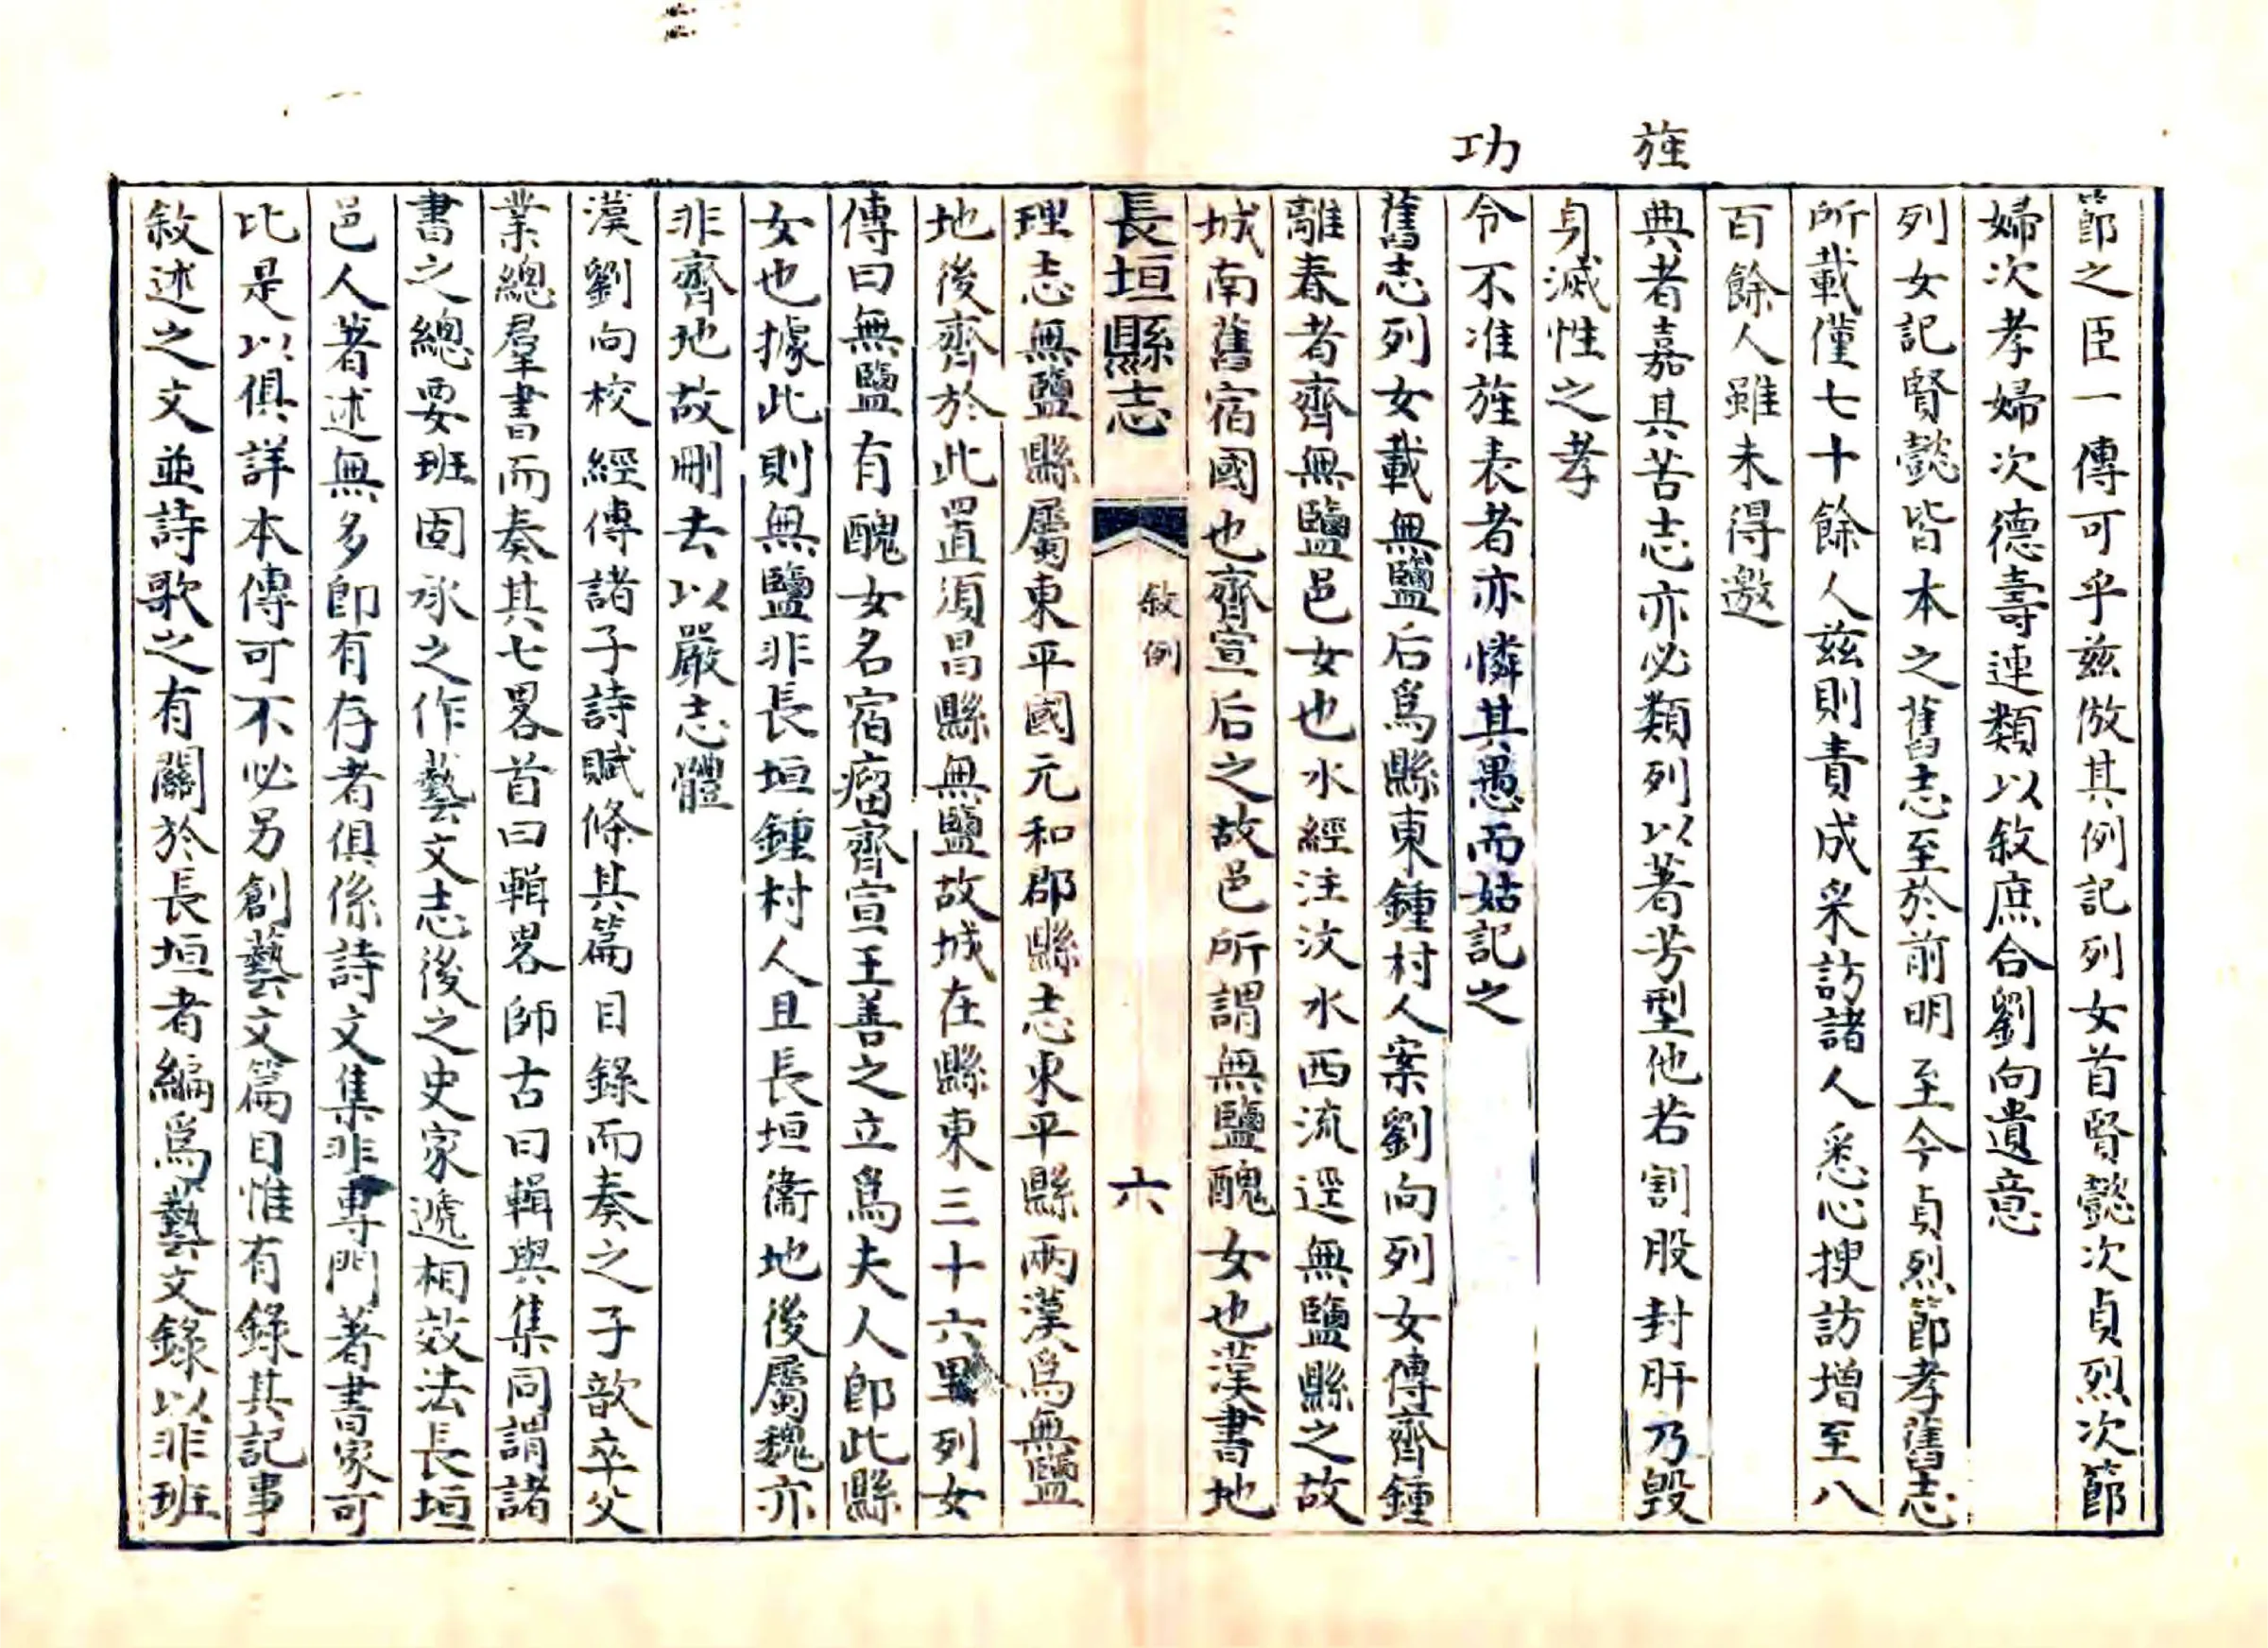 節之臣一傳可乎茲倣其例記列女首賢懿次貞烈次節
婦次孝婦次德壽連類以敘庶合劉向遺意
列女記賢懿皆本之舊志至於前明至今貞烈節孝舊志
所載僅七十餘人茲則責成采訪諸人悉心搜訪增至八
百餘人雖未得邀
旌
典者嘉其苦志亦必類列以著芳型他若割股封肝乃毀
身滅性之孝
功
令不准旌表者亦憐其愚而姑記之
舊志列女載無鹽后為縣東鍾村人案劉向列女傳齊鍾
離春者齊無鹽邑女也水經注汶水西流逕無鹽縣之故
城南舊宿國也齊宣后之故邑所謂無鹽醜女也漢書地
長垣縣志
敘例
六
理志無鹽縣屬東平國元和郡縣志東平縣兩漢為無鹽
地後齊於此置須昌縣無鹽故城在縣東三十六里列女
傳曰無鹽有醜女名宿瘤齊宣王善之立為夫人卽此縣
女也據此則無鹽非長垣鍾村人且長垣衞地後屬魏亦
非齊地故刪去以嚴志體
漢劉向校經傳諸子詩賦條其篇目錄而奏之子歆卒父
業總羣書而奏其七畧首曰輯畧師古曰輯與集同謂諸
書之總要班固承之作藝文志後之史家遞相效法長垣
邑人著述無多卽有存者俱係詩文集非專門著書家可
比是以俱詳本傳可不必另創藝文篇目惟有錄其記事
敘述之文並詩歌之有關於長垣者編為藝文錄以非班